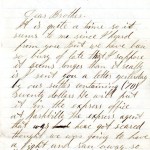 Dear Brother.
It is quite a time so it
seems to me since I heard
from you But we have been
so busy of late that I suppose
it seems longer than it really
is I sent you a letter yesterday
by our sutler containing
Seventy dollars He will put
it in the express office
at Nashville the express agent
that was here got scared
thought we were going to have
a fight and ran away so